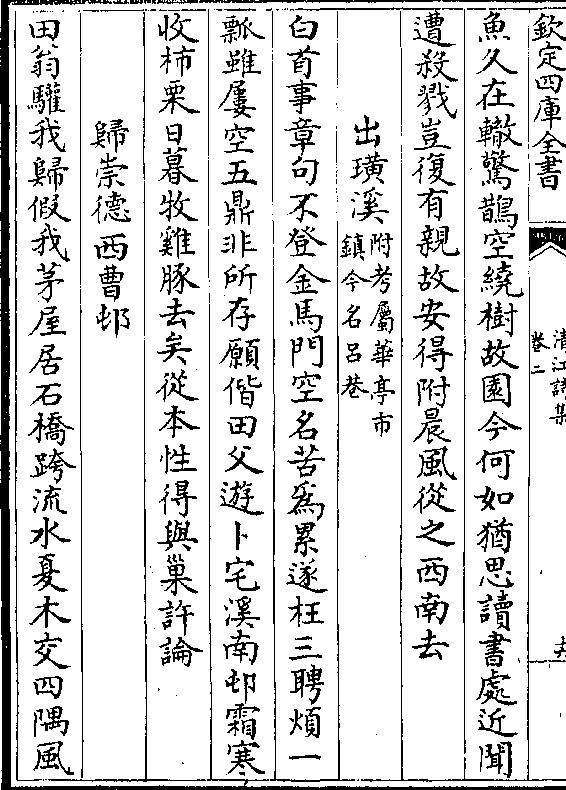 欽定四庫全書
清江詩集
卷二
魚久在轍驚鵲空繞樹故園今何如猶思讀書處近聞
遭殺戮豈復有親故安得附晨風從之西南去
出璜溪附考屬華亭市
鎮今名呂巷
白首事章句不登金馬門空名苦為累遂枉三聘煩一
瓢雖屢空五鼎非所存願偕田父遊卜宅溪南邨霜寒
收柿栗日暮牧雞豚去矣從本性得與巢許論
歸崇德西曹邨
田翁驩我歸假我茅屋居石橋跨流水憂木交四隅風